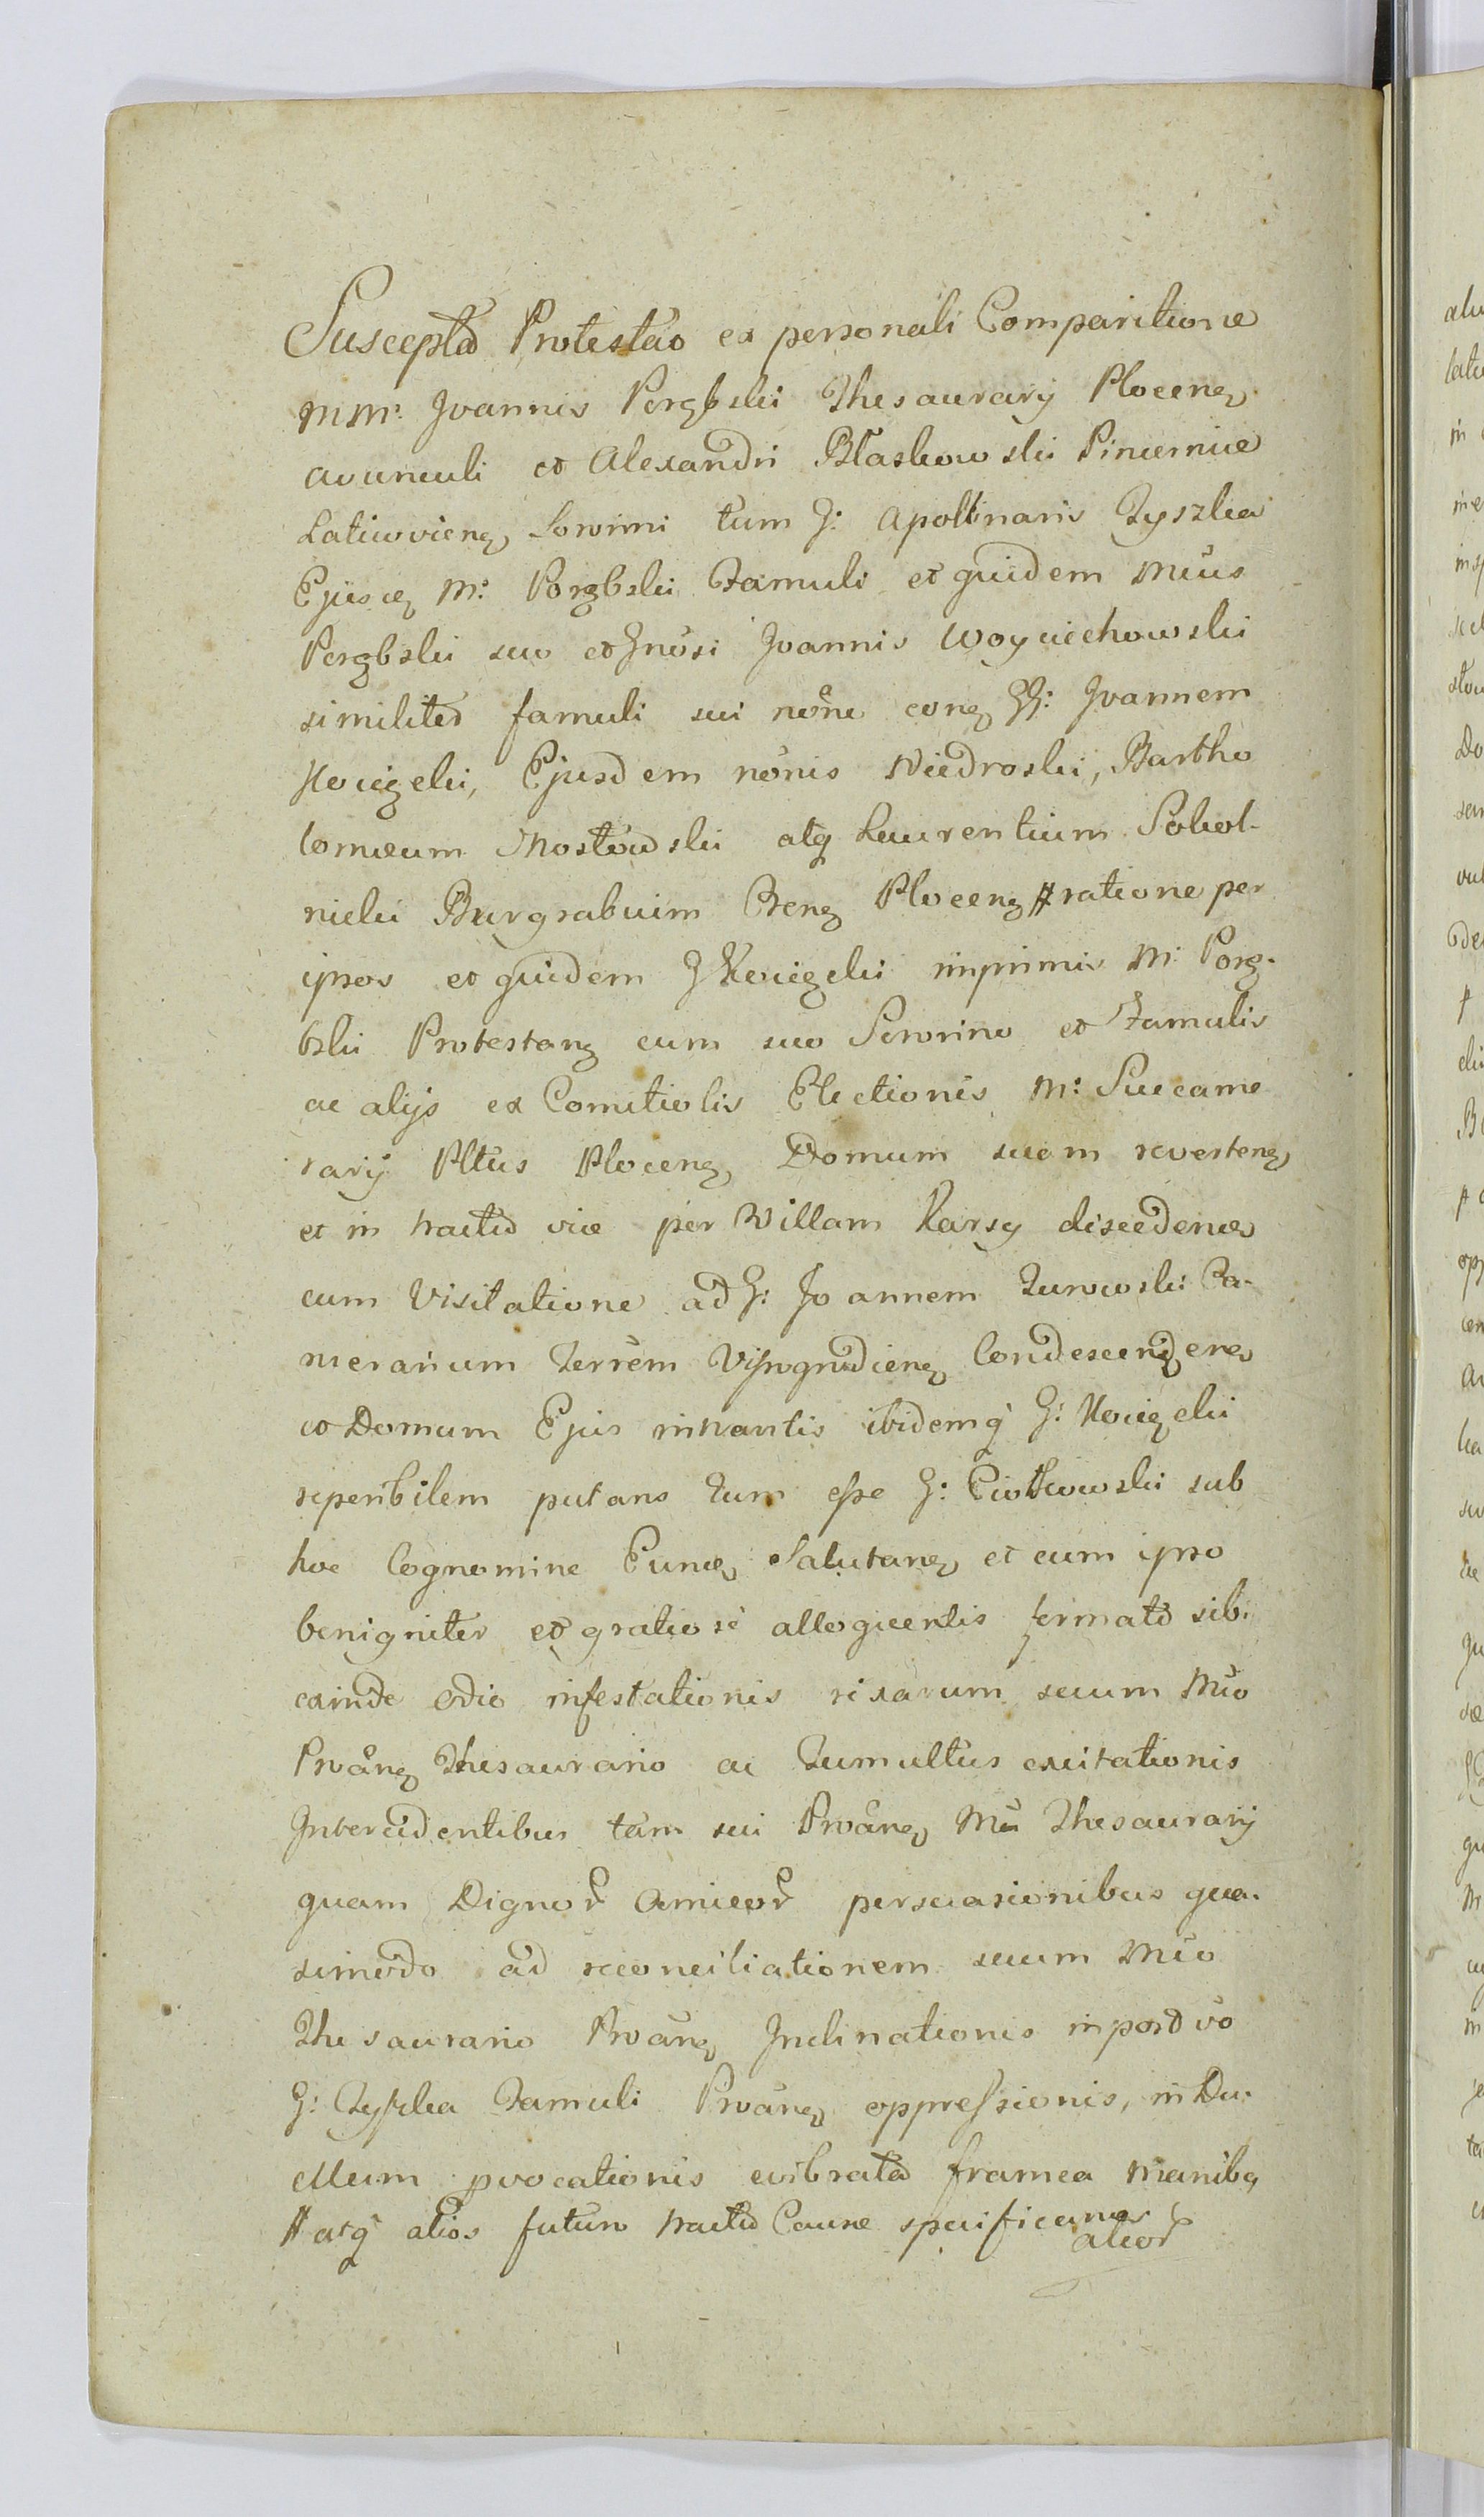 Suscepta Protestao ex personali Comparitione
MM: Joannis Porębski Thesaurarij Plocenę
avunculi et Alexandri Błaskowski Pincernae
Latiwvienę Sororini tum G: Apollinaris Zyszka
Ejuscę M: Porębski Famuli et quidem Mŭus
Porębski suo et Gnŭsi Joannis Woyciechowski
similiter famuli sui nŏne conę GG: Joannem
Kocięcki, Ejusdem nŏnis Niedroski, Bartho
lomæum Mostowski atq Laurentium Sokol-
nicki Burgrabium Crenę Plocenę # ratione per
ipsos et quidem G Kocięcki inprimis M: Porę-
bski Protestanę cum suo Sororino et Famulis
ac alijs ex Comitiolis Electionis M: Succame
rarij Pltŭs Plocenę Domum suam revertenę
et in tractu viæ per Villam Karsy discedenę
cum Visitatione ad G: Joannem Zurowski Ca-
merarium Terrĕm Vissogrudienę Condescendenę
et Domum Ejus intrantis ibidemq G: Kocięcki
reperibilem putans Eum esse G: Ciołkowski sub
hoc Cognomine Eunæ Salutanę et cum ipso
benigniter et gratiosè alloquentis firmato sibi
exinde odio infestationis rixarum secum Mŭo
Proănę Thesaurario ac Tumultus excitationis
Intercidentibus tam sui Proănę Mŭ Thesaurarij
quam Dignor Amicor persuasionibus qua-
simodo ad reconciliationem secum Mŭo
Thesaurario Proănę Inclinationis inpostvŏ
G: Zyszka Famuli Proănę oppressionis, in Du-
ellum pvocationis evibrata framea manibq
# atq alios futuro tractu Causæ specificanę
alior